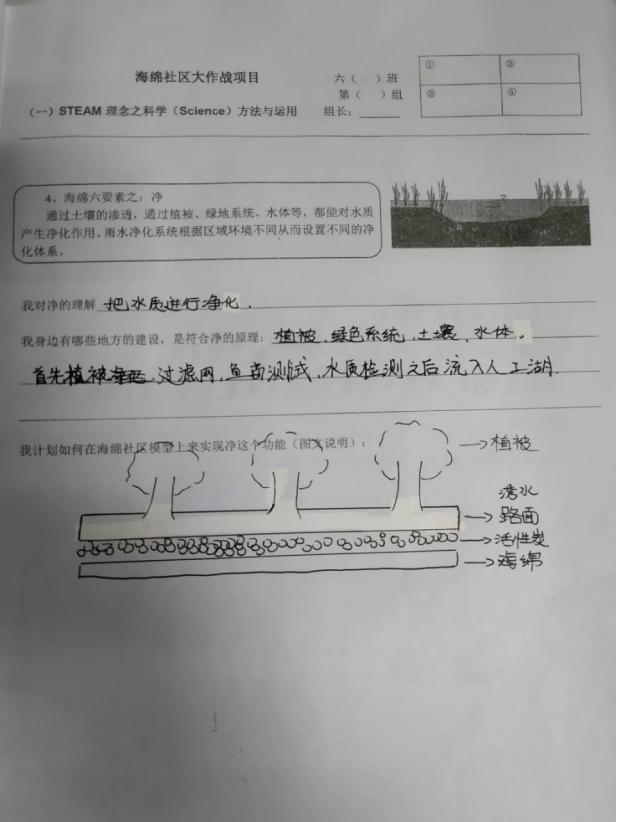 海绵社区大作战项目
六（ ）班
第（ ）组
（一）STEAM 理念之科学（Science）方法与运用 组长：
① ②
③ ④
4、海绵六要素之：净
通过土壤的渗透，通过植被、绿地系统、水体等，都能对水质
产生净化作用。雨水净化系统根据区域环境不同从而设置不同的净
化体系。
我对净的理解 把水质进行净化.
我身边有哪些地方的建设，是符合净的原理：植被、绿色系统、土壤、水体。
首先植被，过滤网，鱼苗测试，水质检测之后流入人工湖.
我计划如何在海绵社区模型上来实现净这个功能（图文说明）：
植被
透水
路面
活性炭
海绵